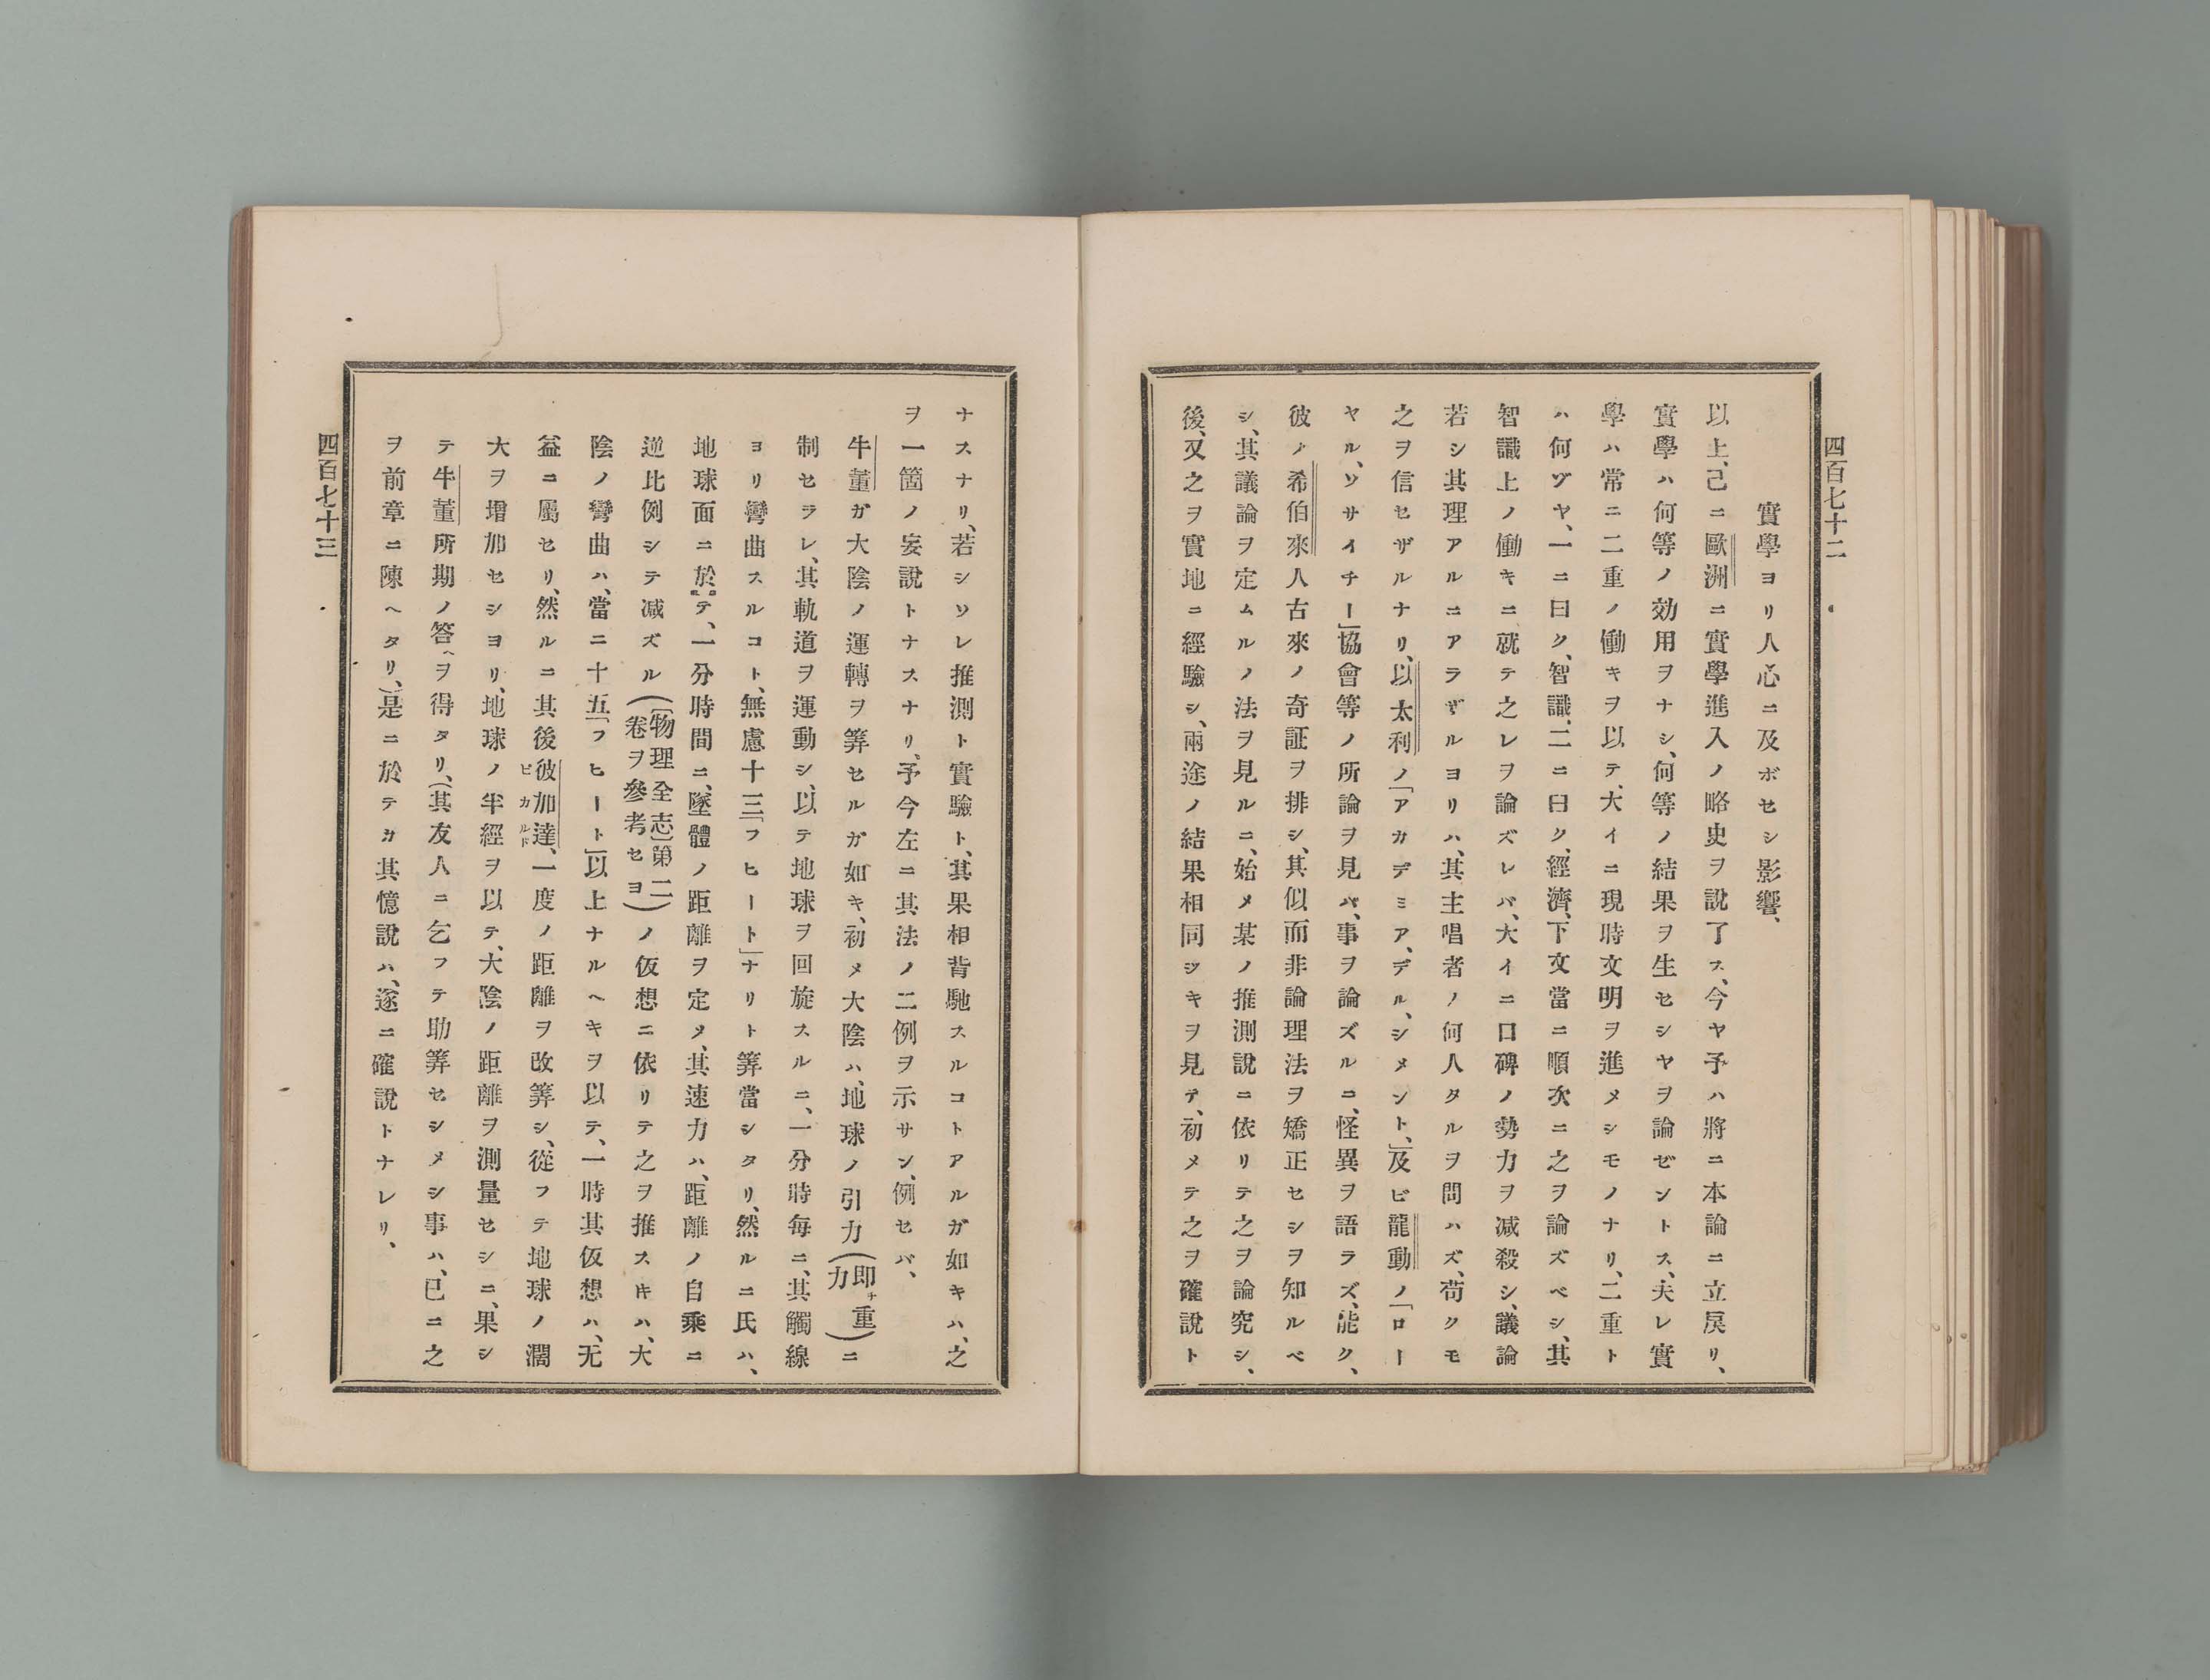 四百七十二
實學ヨリ人心ニ及ボセシ影響、
以上、己ニ歐洲ニ實學進入ノ略史ヲ說了ス、今ヤ予ハ將ニ本論ニ立戾リ、
實學ハ何等ノ効用ヲナシ、何等ノ結果ヲ生セシヤヲ論ゼントス、夫レ實
學ハ常ニ二重ノ働キヲ以テ、大イニ現時文明ヲ進メシモノナリ、二重ト
ハ何ヅヤ、一ニ曰ク、智識、二ニ曰ク、經濟、下文當ニ順次ニ之ヲ論ズベシ、其
智識上ノ働キニ就テ之レヲ論ズレバ、大イニ口碑ノ勢力ヲ减殺シ、議論
若シ其理アルニアラザルヨリハ、其主唱者ノ何人タルヲ問ハズ、苟クモ
之ヲ信セザルナリ、以太利ノ「アカデミア、デル、シメント、」及ビ龍動ノ「ロー
ヤル、ソサイチー」協會等ノ所論ヲ見バ、事ヲ論ズルニ、怪異ヲ語ラズ、能ク、
彼ノ希伯來人古來ノ奇証ヲ排シ、其似而非論理法ヲ矯正セシヲ知ルベ
シ、其議論ヲ定ムルノ法ヲ見ルニ、始メ某ノ推測說ニ依リテ之ヲ論究シ、
後、又之ヲ實地ニ經驗シ、兩途ノ結果相同ジキヲ見テ、初メテ之ヲ確說ト
ナスナリ、若シソレ推測ト實驗ト、其果相背馳スルコトアルガ如キハ、之
ヲ一箇ノ妄說トナスナリ、予今左ニ其法ノ二例ヲ示サン、例セバ、
牛董ガ大陰ノ運轉ヲ筭セルガ如キ、初メ大陰ハ、地球ノ引力(即チ重力)ニ
制セラレ、其軌道ヲ運動シ、以テ地球ヲ回旋スルニ、一分時每ニ、其觸線
ヨリ彎曲スルコト、無慮十三「フヒート」ナリト筭當シタリ、然ルニ氏ハ、
地球面ニ於テ、一分時間ニ、墜體ノ距離ヲ定メ、其速力ハ、距離ノ自乘ニ
逆比例シテ减ズル(「物理全志」第二卷ヲ參考セヨ)ノ仮想ニ依リテ之ヲ推スキハ、大
陰ノ彎曲ハ、當ニ十五「フヒート」以上ナルヘキヲ以テ、一時其仮想ハ、无
益ニ屬セリ、然ルニ其後彼加達、一度ノ距離ヲ改筭シ、從フテ地球ノ濶
大ヲ增加セシヨリ、地球ノ半經ヲ以テ、大陰ノ距離ヲ測量セシニ、果シ
テ牛董所期ノ答ヘヲ得タリ、(其友人ニ乞フテ助筭セシメシ事ハ、已ニ之
ヲ前章ニ陳ヘタリ、)是ニ於テカ其憶說ハ、遂ニ確說トナレリ、
四百七十三